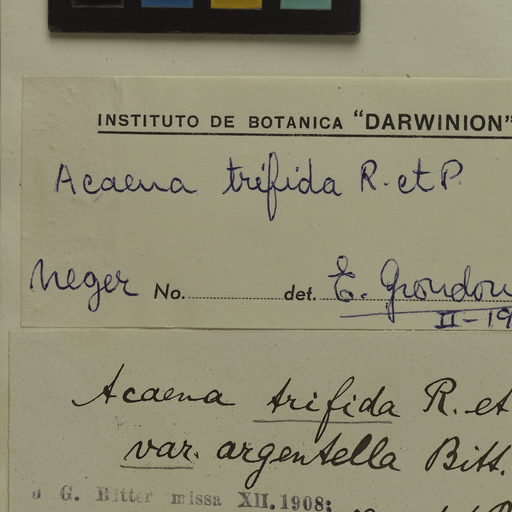 INSTITUTO DE BOTANICA "DARWINION"
Acaena trifida R. et P.
Neger No. det. E. Grondon
II-19
Acaena trifida R. et
var. argentella Bitt.
G. Bitter missa XII.1908: